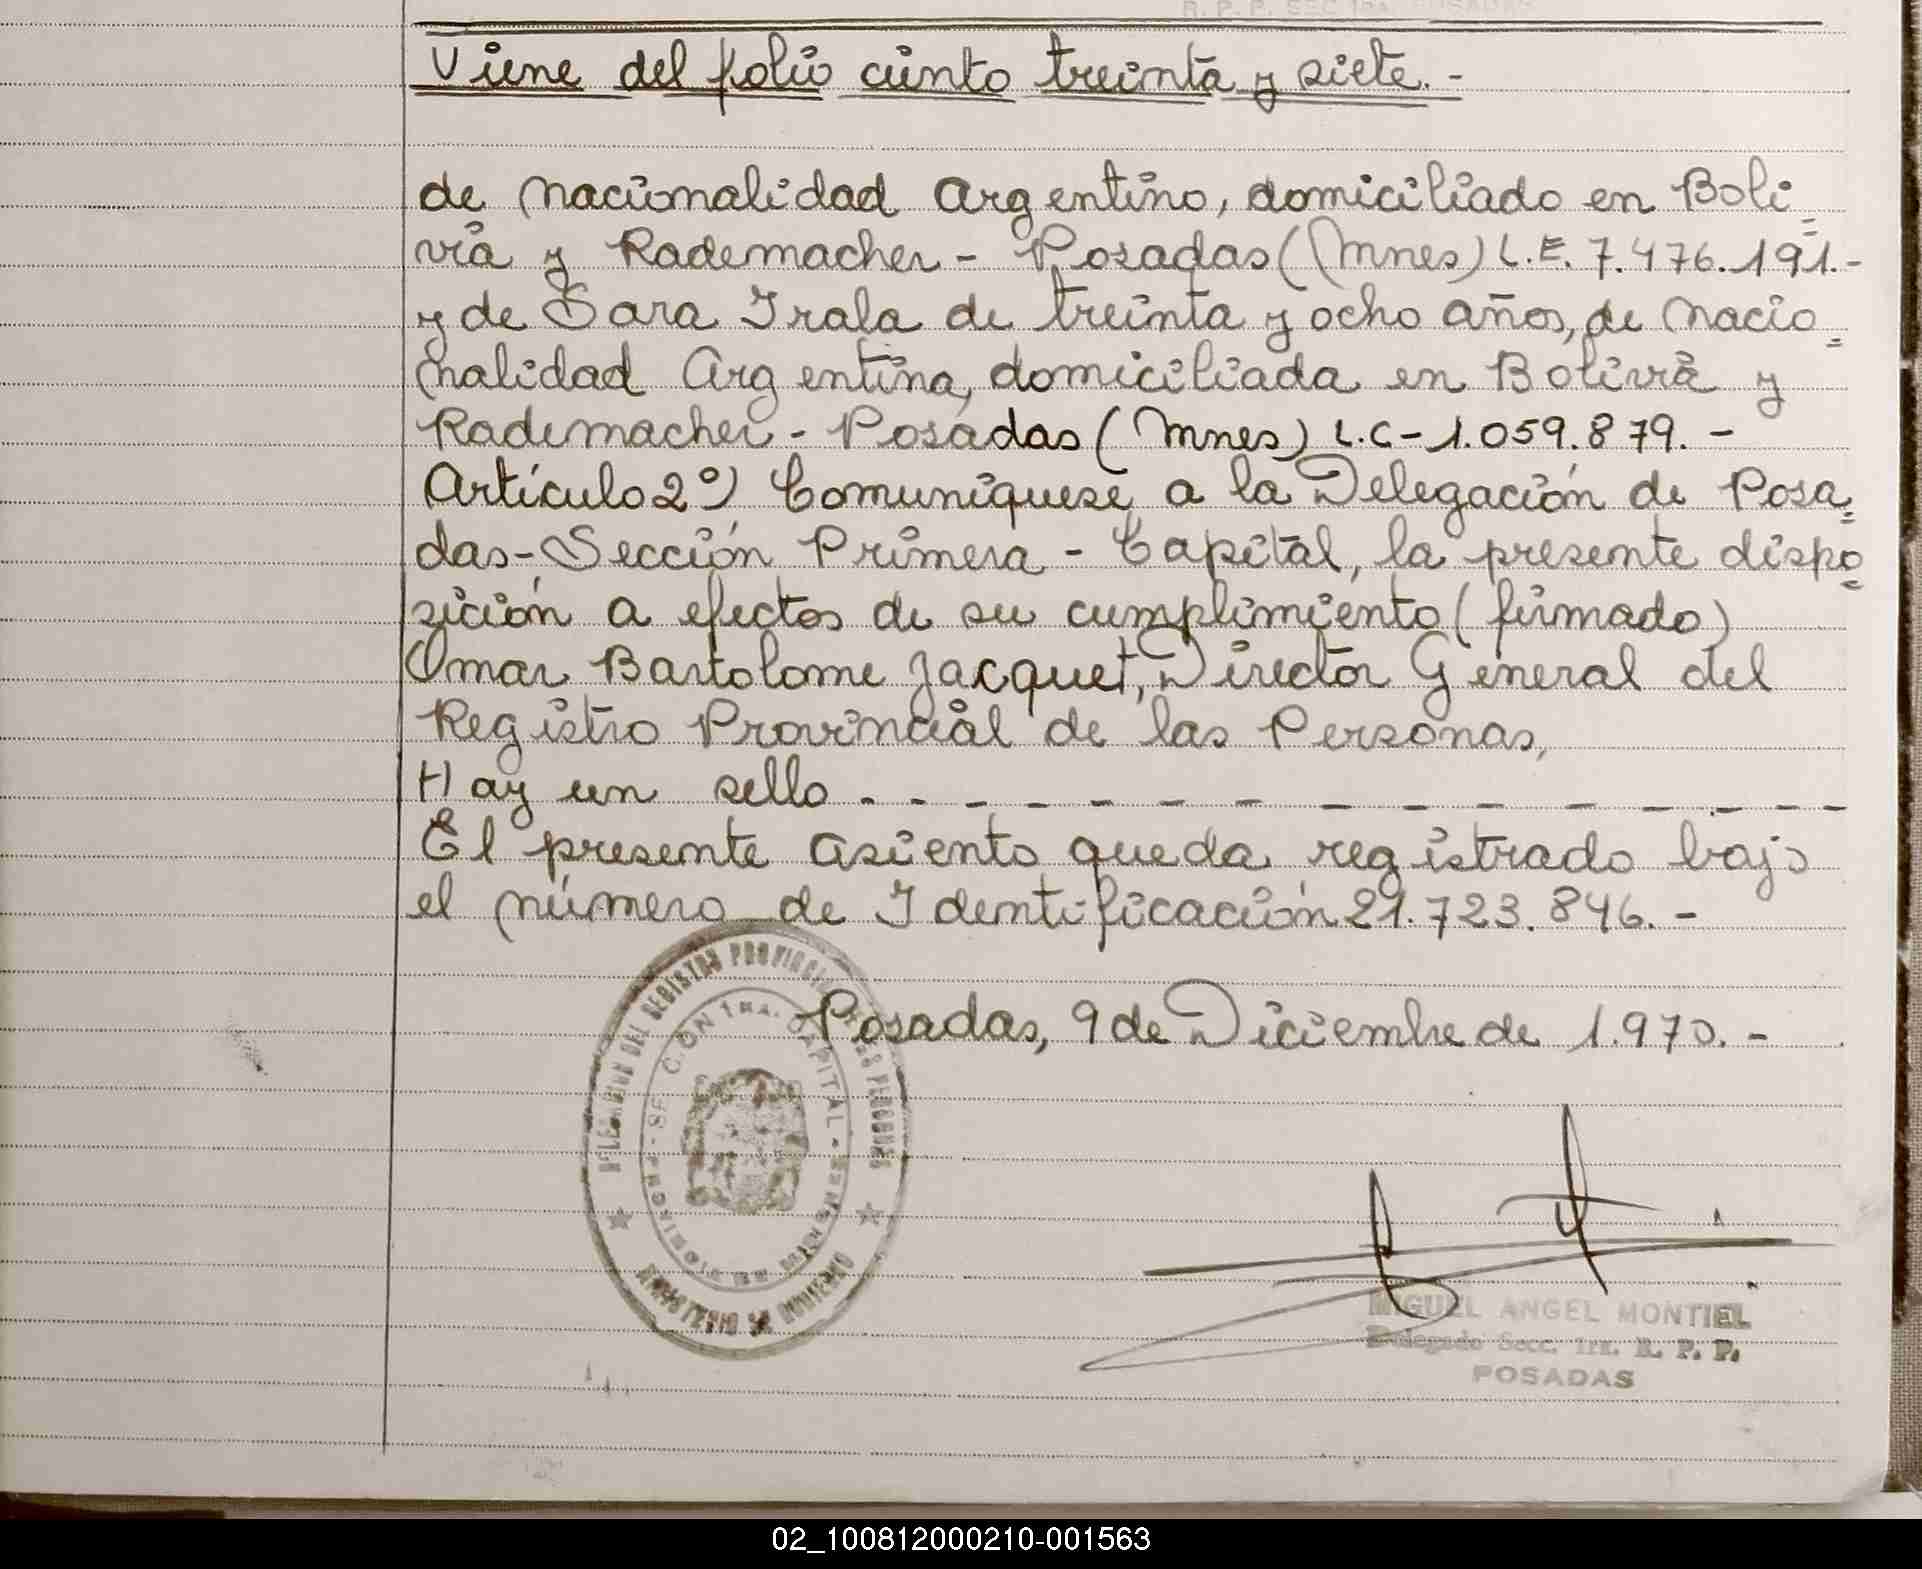 R. P. P. SEC 1ra. POSADAS
Viene del folio ciento treinta y siete.-
de nacionalidad Argentino, domiciliado en Boli-
via y Rademacher - Posadas (Mnes) L.E. 7.476.191.-
y de Sara Irala de treinta y ocho años, de nacio=
nalidad Argentina, domiciliada en Bolivia y
Rademacher - Posadas (Mnes) L.C - 1.059.879. -
Artículo 2º) Comuníquese a la Delegación de Posa=
das - Sección Primera - Capital, la presente dispo=
sición a efectos de su cumplimiento (firmado)
Omar Bartolome Jacquet, Director General del
Registro Provincial de las Personas,
Hay un sello - - - - - - - - - - - - - -
El presente asiento queda registrado bajo
el número de Identificación 21.723.846. -
Posadas, 9 de Diciembre de 1.970. -
DEL REGISTRO PROVINCIAL DE LAS PERSONAS
1RA. CAPITAL
MINISTERIO DE GOBIERNO
MIGUEL ANGEL MONTIEL
Delegado Secc. 1ra. R. P. P.
POSADAS
02_100812000210-001563